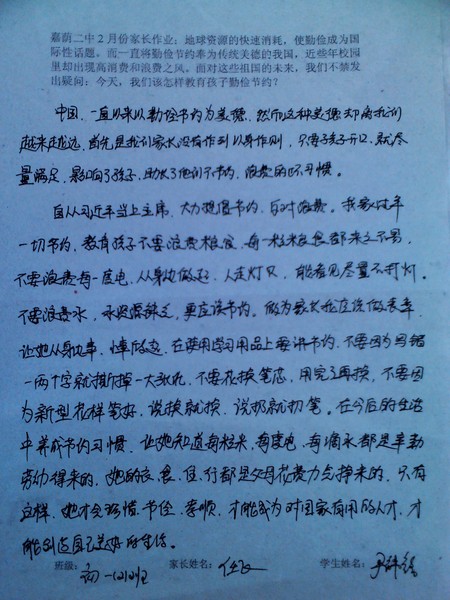 嘉荫二中2月份家长作业:地球资源的快速消耗,使勤俭成为国
际性话题。而一直将勤俭节约奉为传统美德的我国,近些年校园
里却出现高消费和浪费之风。面对这些祖国的未来,我们不禁发
出疑问:今天,我们该怎样教育孩子勤俭节约?
中国,一直以来以勤俭节约为美德,然而这种美德却离我们
越来越远,首先是我们家长没有作到以身作则,只要孩子开口,就尽
量满足,影响了孩子,助长了他们不节约、浪费的坏习惯。
自从习近平当上主席,大力提倡节约,反对浪费。我家过年
一切节约,教育孩子不要浪费粮食,每一粒粮食都来之不易,
不要浪费每一度电,从身边做起,人走灯灭,能看见尽量不打灯。
不要浪费水,水资源缺乏,更应该节约。做为家长我应该做表率,
让她从身边事,情做起,在使用学习用品上要讲节约,不要因为写错
一两个字就撕掉一大张纸,不要花换笔芯,用完了再换,不要因
为新型花样笔好,说换就换,说扔就扔笔。在今后的生活
中养成节约习惯,让她知道每粒米,每度电,每滴水都是辛勤
劳动得来的,她的衣、食、住、行都是父母花费力气挣来的,只有
这样,她才会珍惜、节俭、孝顺,才能成为对国家有用的人才,才
能创造自己美好的生活。
班级: 初一(四)班 家长姓名: 任 学生姓名: 尹